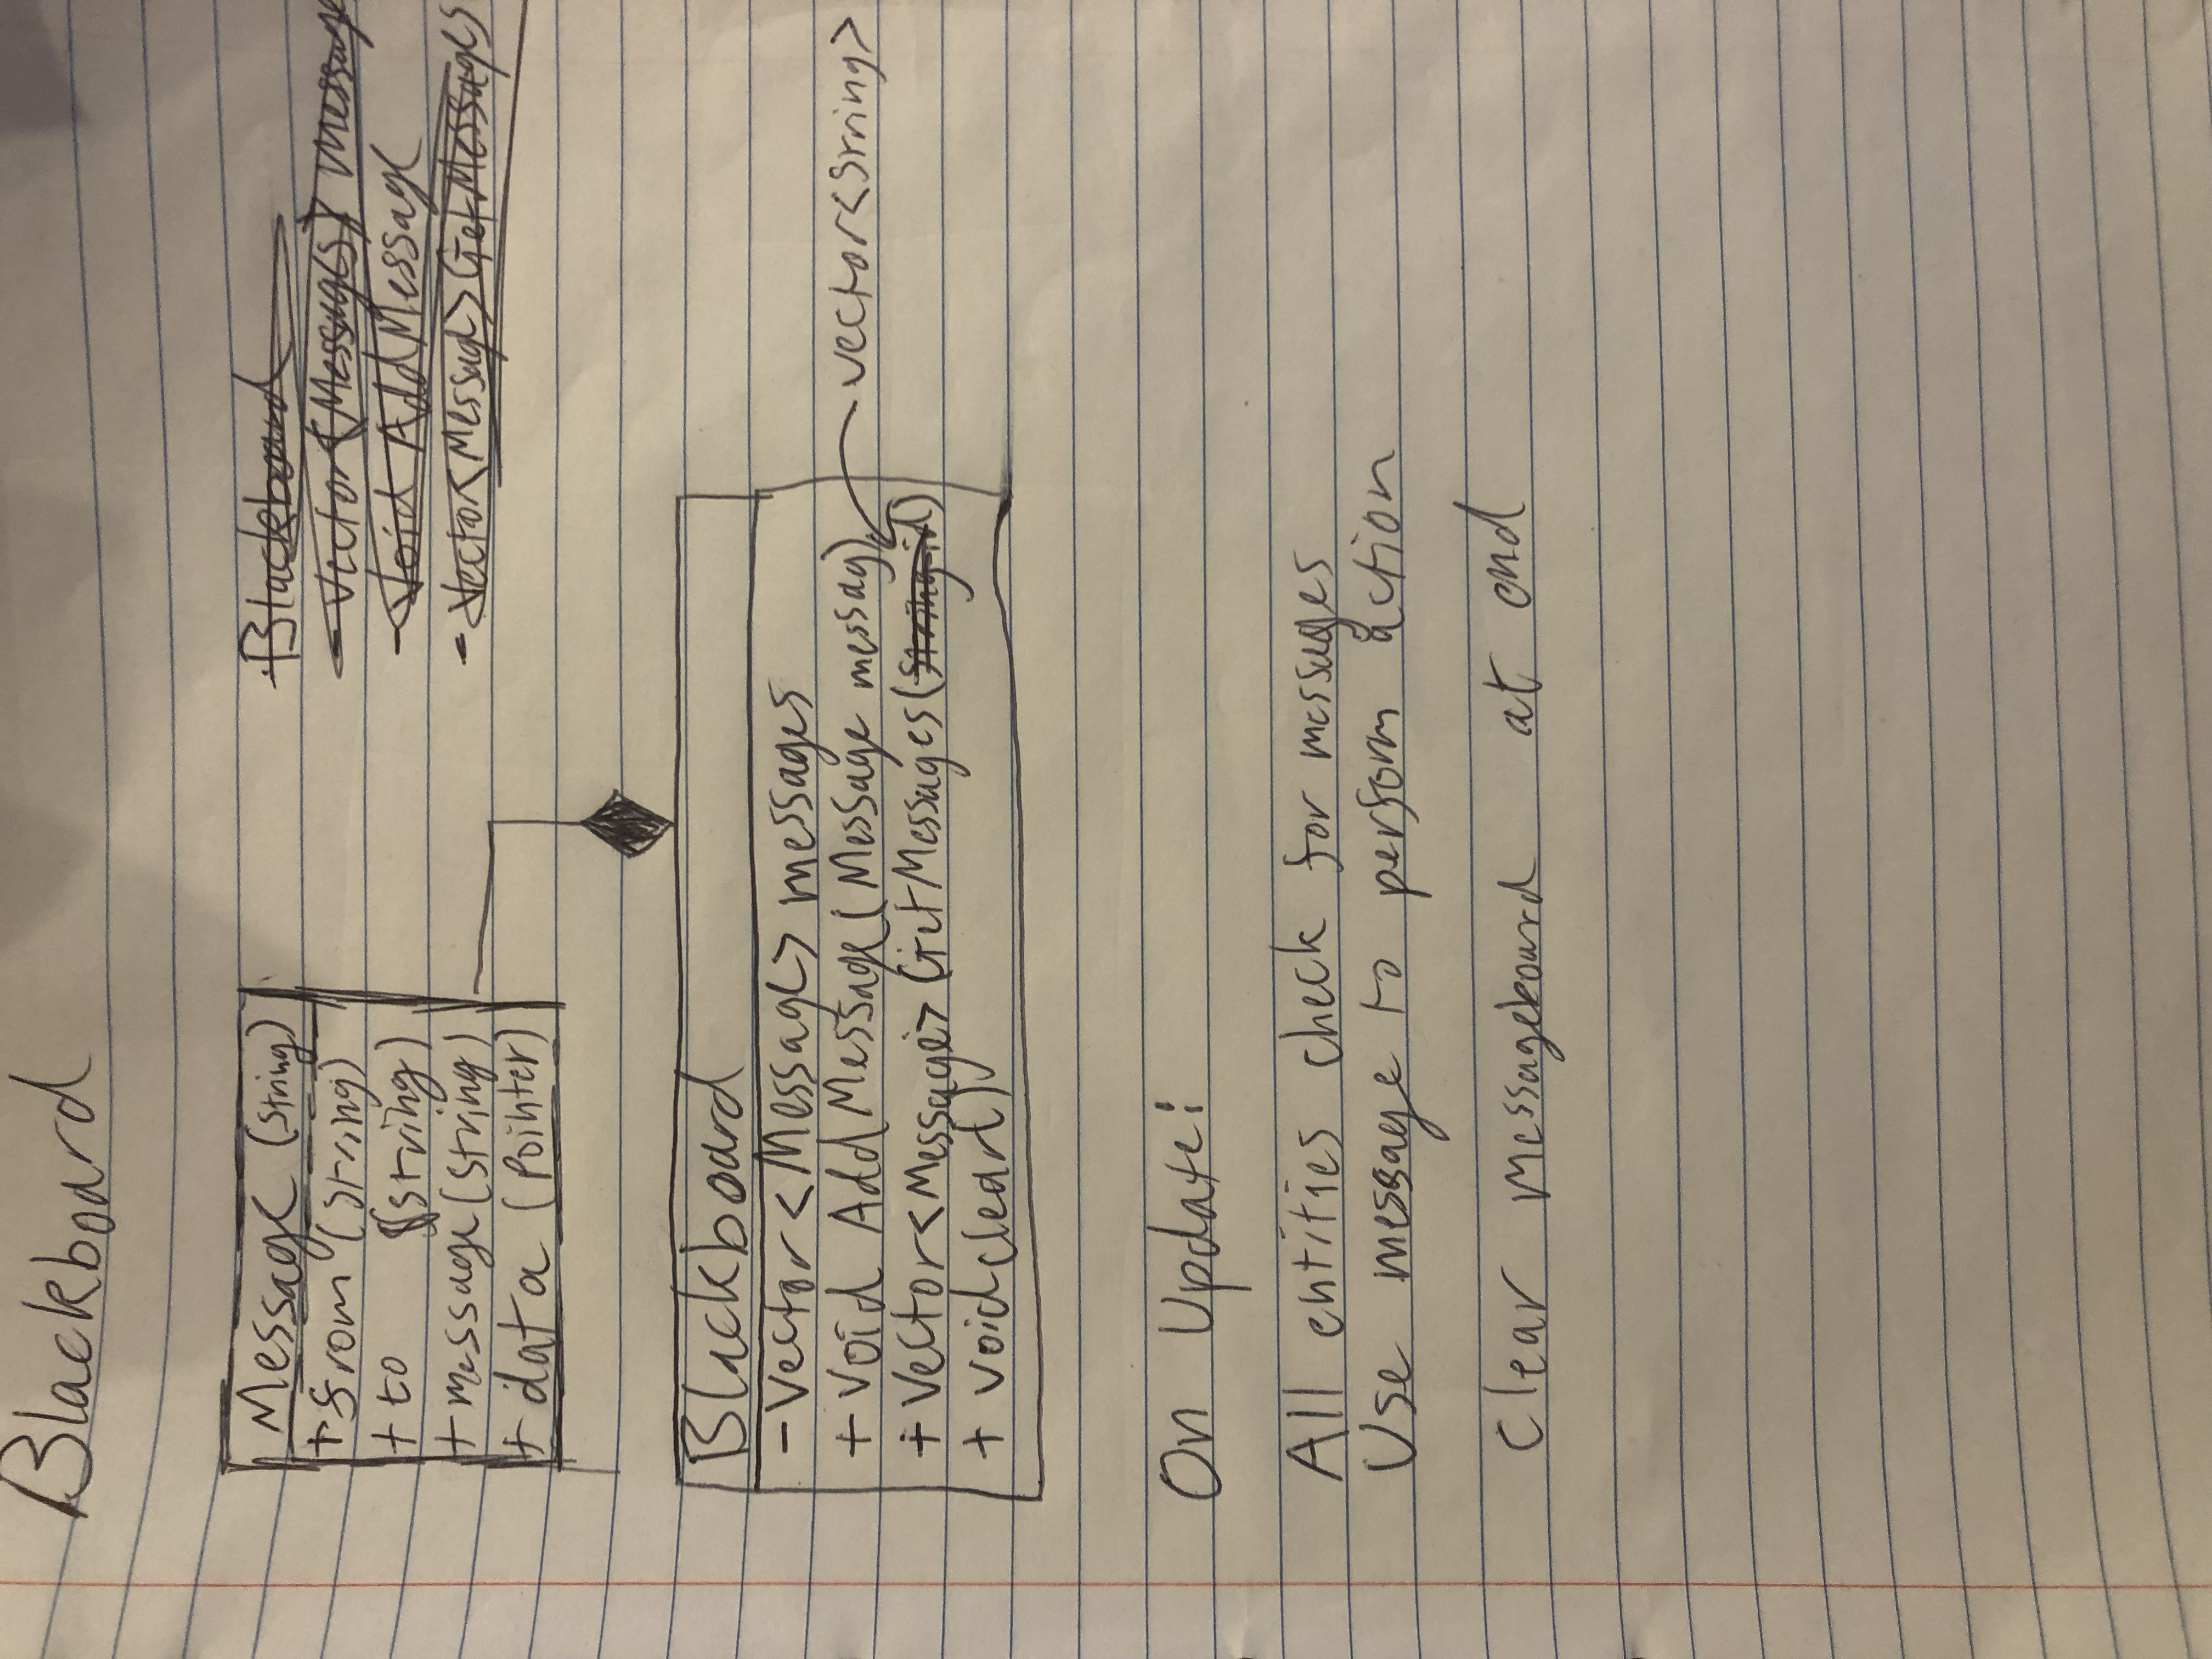 Blackboard
Message (string)
+ from (string)
+ to (string)
+ message (string)
+ data (pointer)
Blackboard
- Vector<(Messages)> Message
- Void AddMessage
- Vector<Message> GetMessages
Blackboard
- Vector<Message> messages
+ Void AddMessage(Message messag)
vector<string>
+ Vector<Message> GetMessages(string id)
+ void clear()
On Update:
All entities check for messages
Use message to perform action
Clear messageboard at end